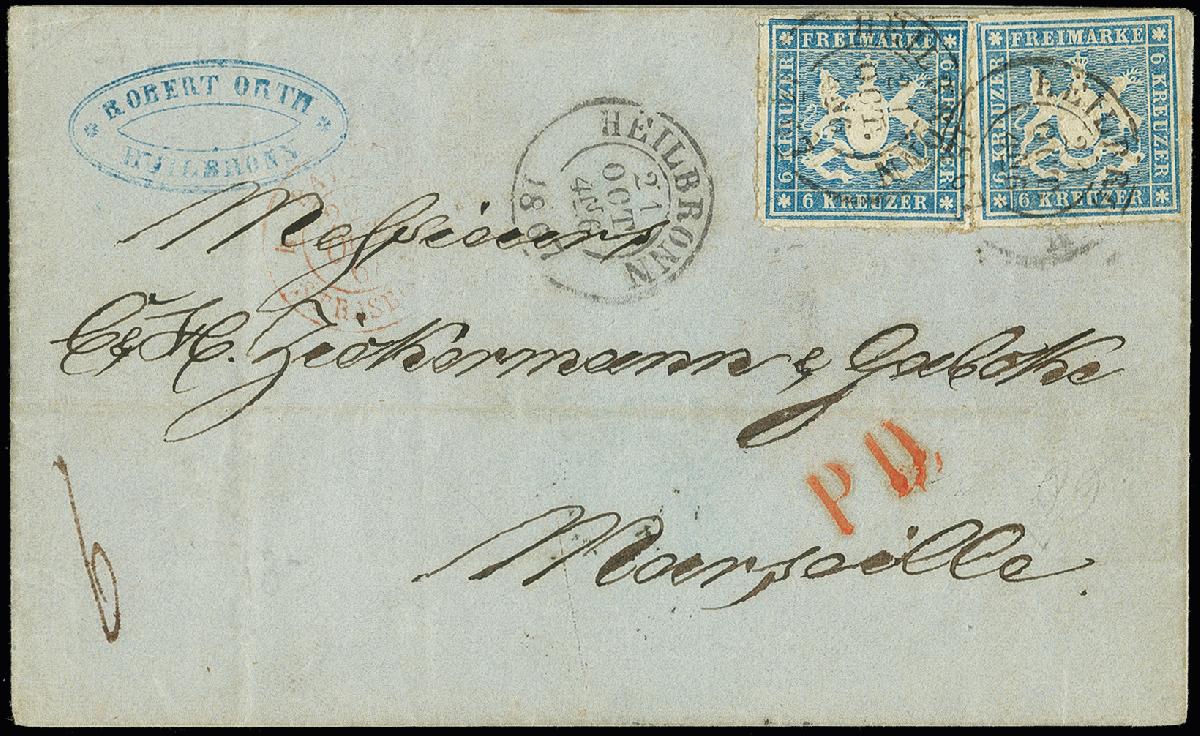 ROBERT ORTH
HEILBRONN
HEILBRONN
21
OCT
1861
FREIMARKE
6 KREUZER
6 KREUZER
6 KREUZER
FREIMARKE
6 KREUZER
6 KREUZER
6 KREUZER
HEILBRONN
HEILBR
Messieurs
C & H. Zickermann &
P D
Marseille
6